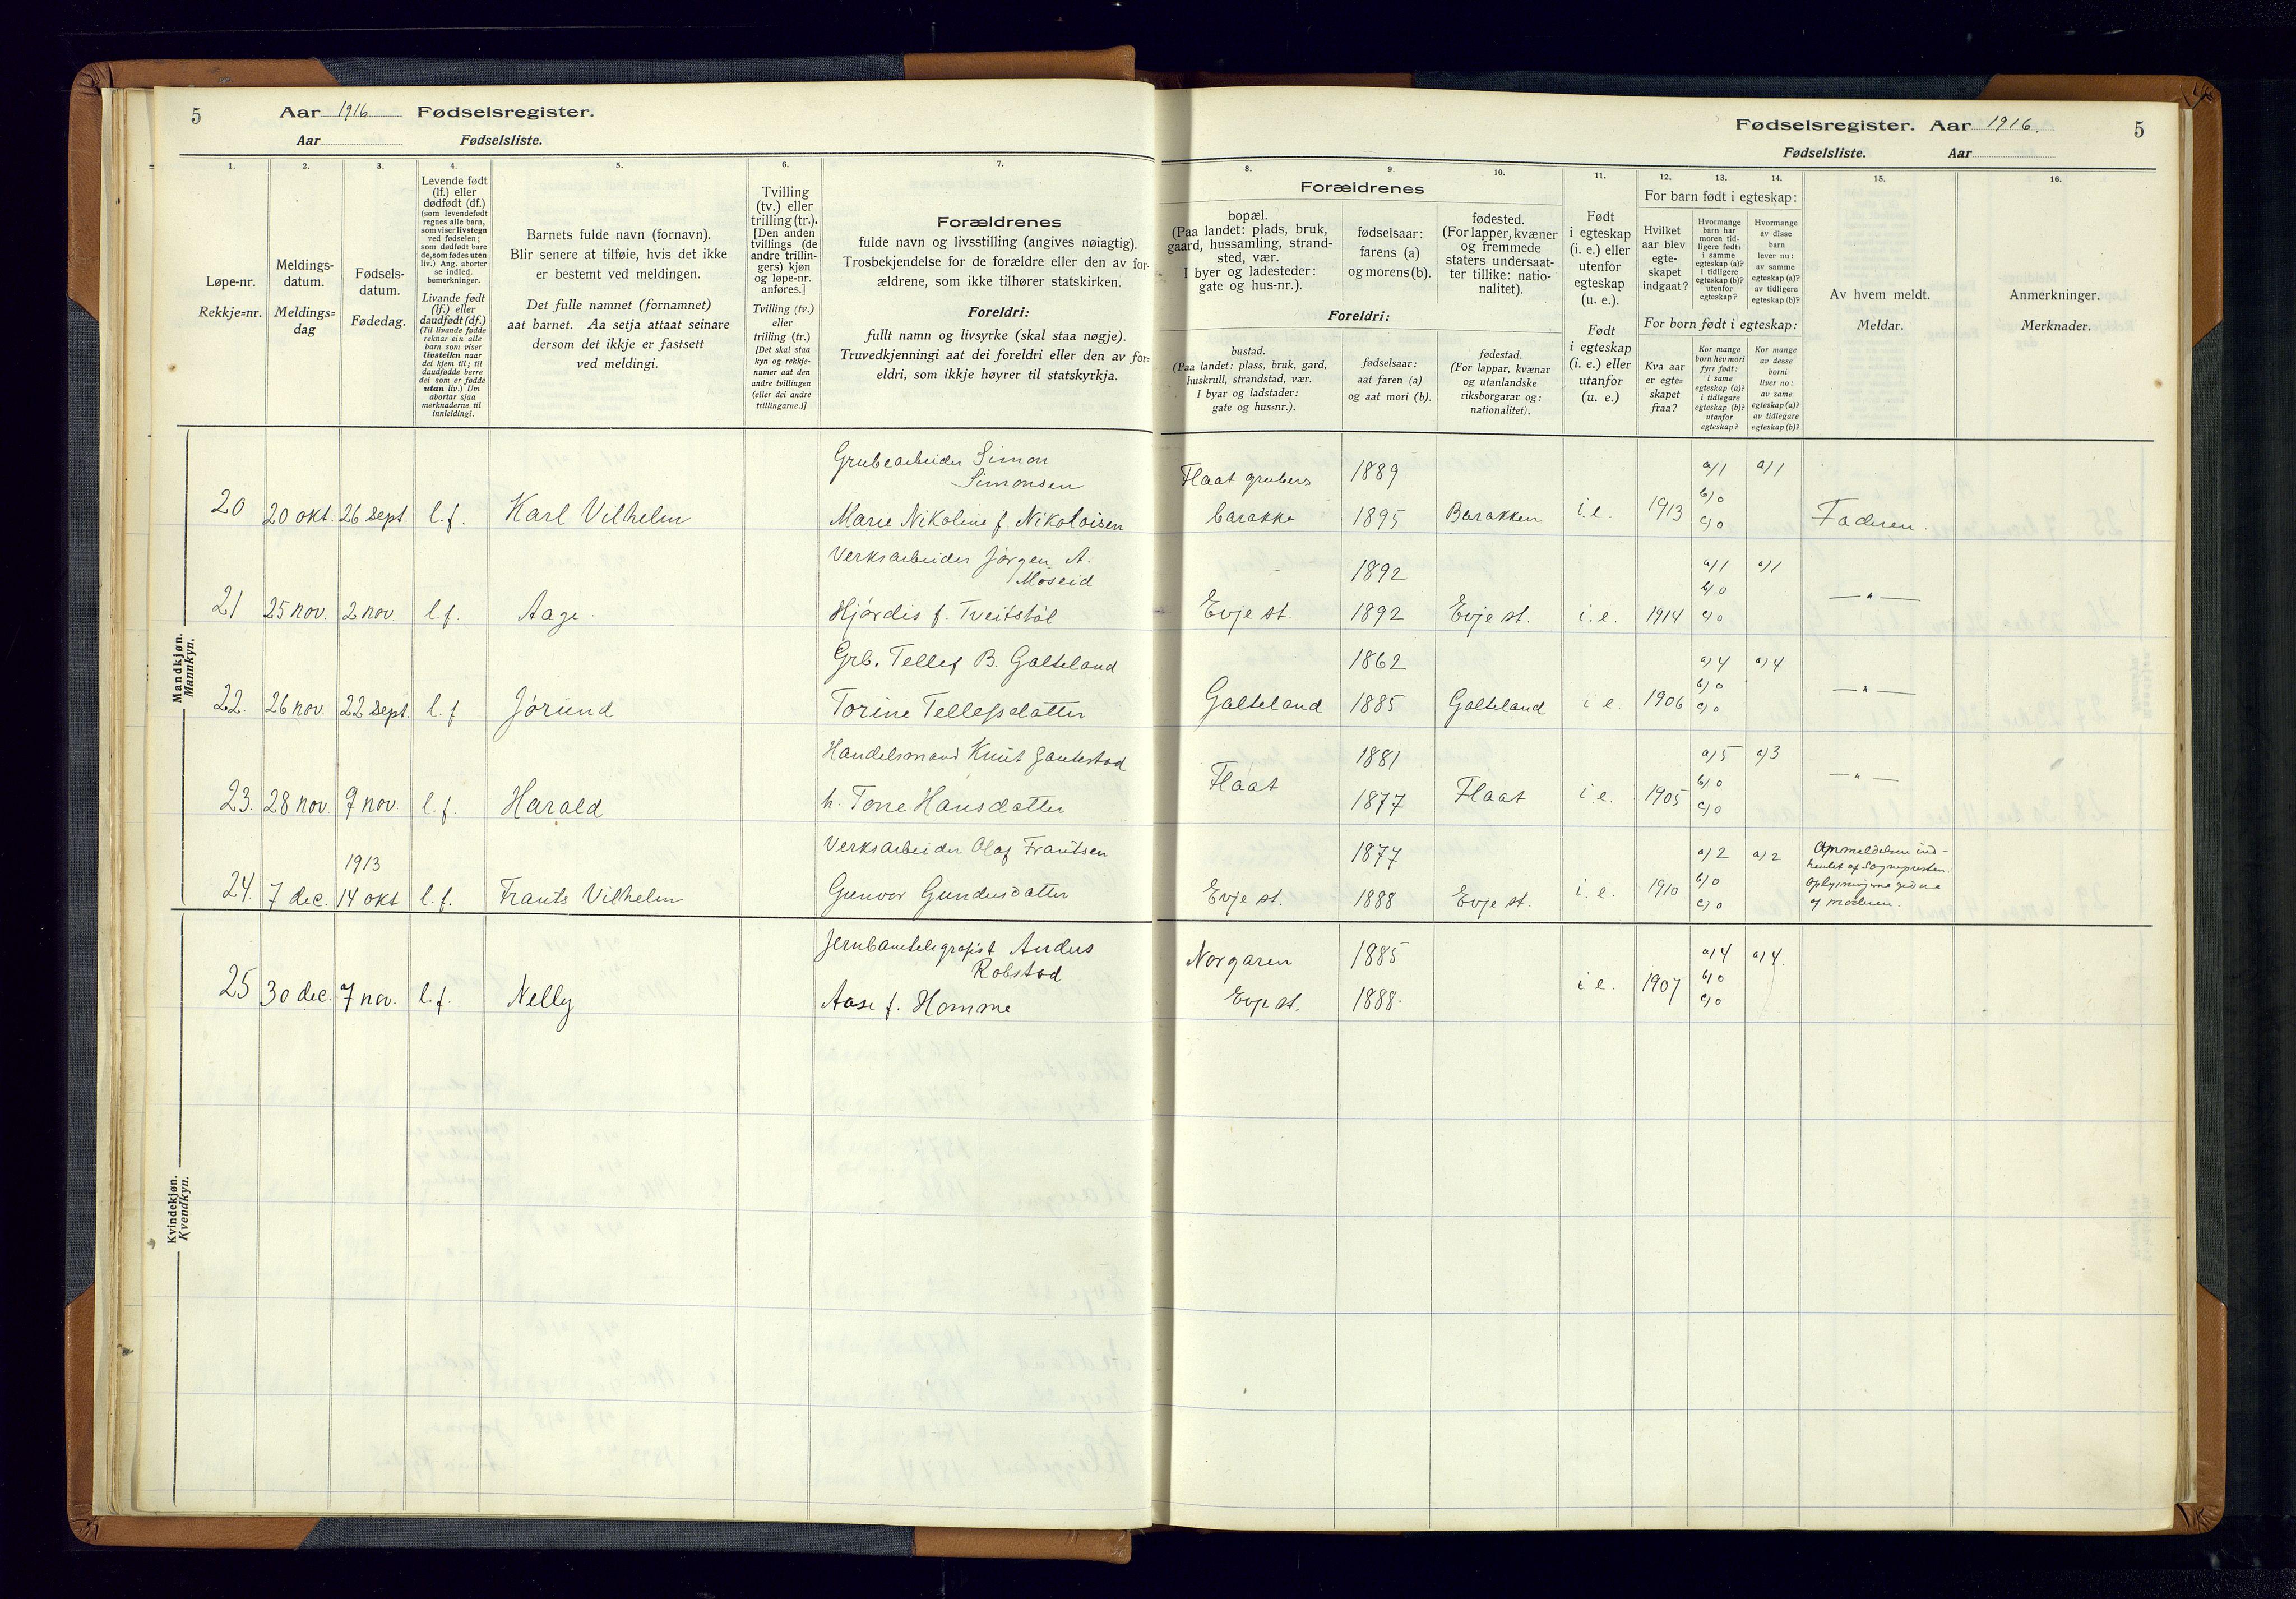 5 Aar 1916 Fødselsregister.
Aar Fødselsliste.
Fødselsregister. Aar 1916. 5
Fødselsliste. Aar
1. 2. 3. 4. 5. 6. 7.
Løpe-nr.
Rekkje=nr.
Meldings-
datum.
Meldings=
dag
Fødsels-
datum.
Fødedag.
Levende født
(lf.) eller
dødfødt (df.)
(som levendefødt
regnes alle barn,
som viser livstegn
ved fødselen;
som dødfødt bare
de, som fødes uten
liv.) Ang. aborter
se indled.
bemerkninger.
Livande født
(lf.) eller
daudfødt (df.)
(Til livande fødde
reknar ein alle
barn som viser
livsteikn naar
dei kjem til; til
daudfødde berre
dei som er fødde
utan liv.) Um
abortar sjaa
merknaderne til
innleidingi.
Barnets fulde navn (fornavn).
Blir senere at tilføie, hvis det ikke
er bestemt ved meldingen.
Det fulle namnet (fornamnet)
aat barnet. Aa setja attaat seinare
dersom det ikkje er fastsett
ved meldingi.
Tvilling
(tv.) eller
trilling (tr.).
[Den anden
tvillings (de
andre trillin-
gers) kjøn
og løpe-nr.
anføres.]
Tvilling (tv.)
eller
trilling (tr.)
[Det skal staa
kyn og rekkje-
numer aat den
andre tvillingen
(eller dei andre
trillingarne.)]
Forældrenes
fulde navn og livsstilling (angives nøiagtig).
Trosbekjendelse for de forældre eller den av for-
ældrene, som ikke tilhører statskirken.
Foreldri:
fullt namn og livsyrke (skal staa nøgje).
Truvedkjenningi aat dei foreldri eller den av for=
eldri, som ikkje høyrer til statskyrkja.
8. 9. 10. 11. 12. 13. 14. 15. 16.
Forældrenes
bopæl.
(Paa landet: plads, bruk,
gaard, hussamling, strand-
sted, vær.
I byer og ladesteder:
gate og hus-nr.).
fødselsaar:
farens (a)
og morens (b).
fødested.
(For lapper, kvæner
og fremmede
staters undersaat-
ter tillike: natio-
nalitet).
Foreldri:
bustad.
(Paa landet: plass, bruk, gard,
huskrull, strandstad, vær.
I byar og ladstader:
gate og hus=nr.).
fødselsaar:
aat faren (a)
og aat mori (b).
fødestad.
(For lappar, kvænar
og utanlandske
riksborgarar og:
nationalitet).
Født
i egteskap
(i. e.) eller
utenfor
egteskap
(u. e.).
Født
i egteskap
(i. e.) eller
utanfor
(u. e.)
For barn født i egteskap:
Hvilket
aar blev
egte-
skapet
indgaat?
Hvormange
barn har
moren tid-
ligere født:
i samme
egteskap (a)?
i tidligere
egteskap (b)?
utenfor
egteskap?
Hvormange
av disse
barn
lever nu:
av samme
egteskap (a)?
av tidligere
egteskap (b)?
For born født i egteskap:
Kva aar
er egte=
skapet
fraa?
Kor mange
born hev mori
fyrr født:
i same
egteskap (a)?
i tidlegare
egteskap (b)?
utanfor
egteskap?
Kor mange
av desse
borni
liver no:
av same
egteskap (a)?
av tidlegare
egteskap (b)?
Av hvem meldt.
Meldar.
Anmerkninger.
Merknader.
Mandkjøn.
Mannkyn.
Grubearbeider Simon a/1 a/1
Simonsen Flaat grubers 1889 b/0
20 20 okt. 26 sept. l.f. Karl Vilhelm Marie Nikoline f. Nikolaisen barakke 1895 Barakken i.e. 1913 c/0 Faderen.
Verksarbeider Jørgen A. 1892 a/1 a/1
Moseid b/0
21 25 nov. 2 nov. l.f. Aage. Hjørdis f. Tveitstøl Evje st. 1892 Evje st. i.e. 1914 c/0 — " —
Grb. Tellef B. Galteland 1862 a/4 a/4
b/0
22. 26 nov. 22 sept. l.f Jørund Torine Tellefsdatter Galteland 1885 Galteland i e. 1906 c/0 — " —
Handelsmand Knut Jautestad 1881 a/5 a/3
Flaat b/0
23. 28 nov. 9 nov. l.f. Harald h. Tone Hansdatter 1877 Flaat i e. 1905 c/0 — " —
Verksarbeider Olaf Frantsen 1877 a/2 a/2 Anmeldelsen ind-
1913 b/0 hentet af Sognepresten.
24. 7 dec. 14 okt l.f. Frants Vilhelm Gunvor Gundersdatter Evje st. 1888 Evje st. i.e. 1910 c/0 Oplysningerne givne
af moderen.
Kvindekjøn.
Kvendkyn.
Jernbanetelegrafist Anders Norgaren 1885 a/4 a/4.
Robstad b/0
25 30 dec. 7 nov. l.f. Nelly Aase f. Homme Evje st. 1888. i e. 1907 c/0